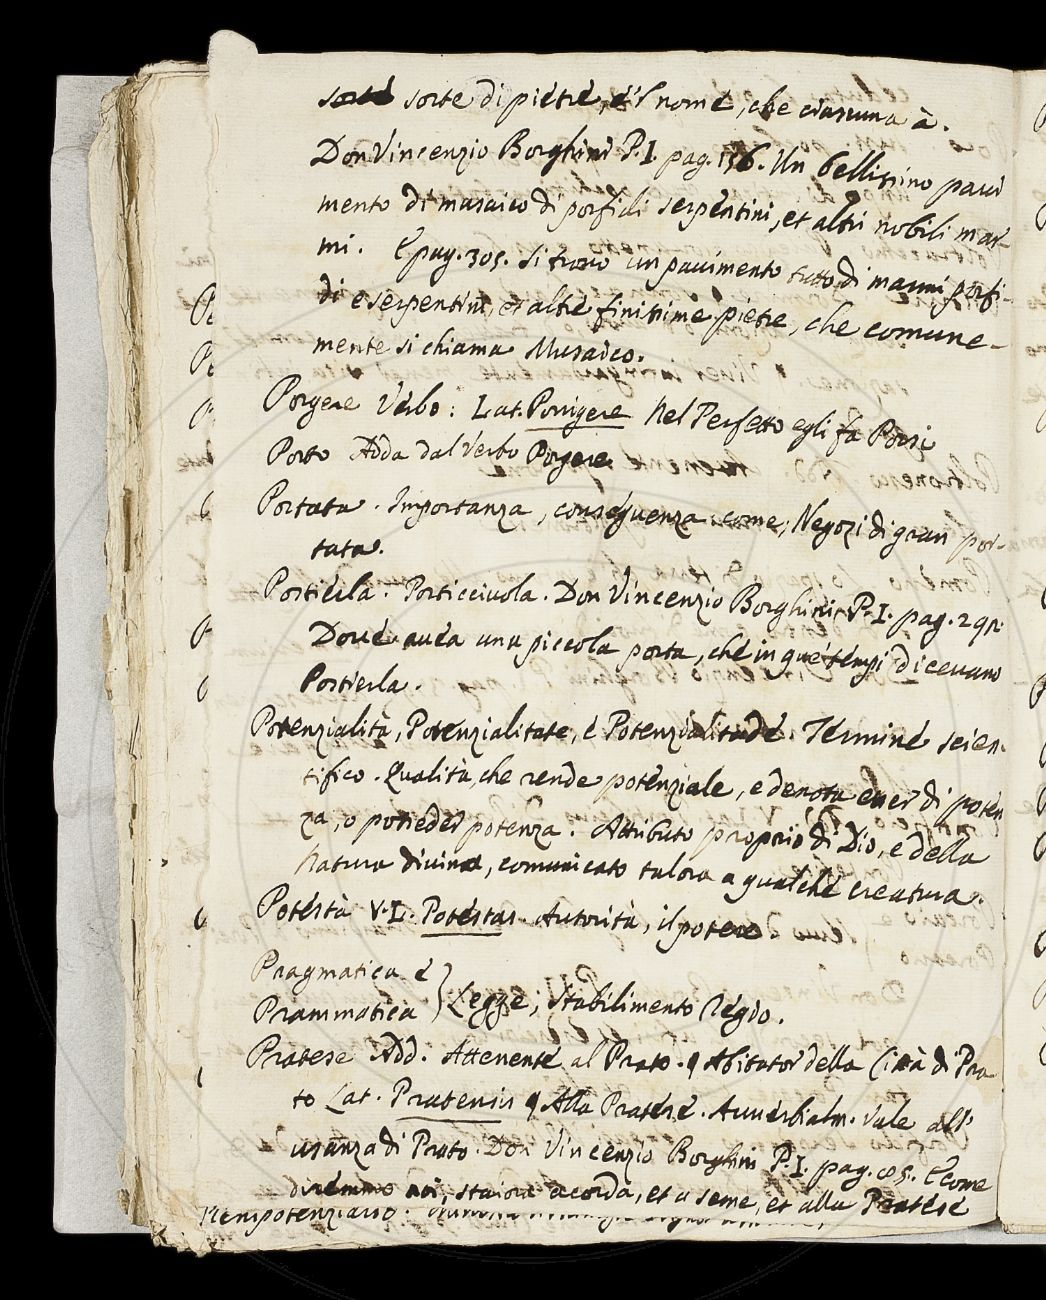 sorte sorte di pietre, e'l nome, che ciascuna à.
Don Vincenzio Borghini P. I. pag. 156. Un bellissimo pavi
mento di musaico di porfidi serpentini, et altri nobili mar-
mi. E pag. 305. Si trovò un pavimento tutto di marmi porfi-
di e serpentini, et altre finissime pietre, che comune-
mente si chiama Musaico.
Porgere Verbo: Lat. Porrigere Nel Perfetto egli fa Porsi
Porto Add. dal Verbo Porgere.
Portata. Importanza, conseguenza come, Negozi di gran por-
tata.
Portierla. Porticciuola. Don Vincenzio Borghini P. I. pag.
Dove avea una piccola porta, che in que' tempi dicevano
Portierla.
Potenzialità, Potenzialitate, e Potenzialitade. Termine scien-
tifico. Qualità, che rende potenziale, e denota esser di poten
za, o posseder potenza. Attributo proprio di Dio, e della
Natura divina, comunicato talora a qualche creatura.
Potestà V. L. Potestas. Autorità, il potere.
Pragmatica e
Prammatica } Legge, Stabilimento Regio.
Pratese Add. Attenente al Prato. ¶ Abitator della Città di Pra
to Lat. Pratensis ¶ Alla Pratese. Avverbialm. Vale all'
usanza di Prato. Don Vincenzio Borghini P. I. pag. E come
diremmo noi, staiora a corda, et a seme, et alla Pratese
Plenipotenziario.